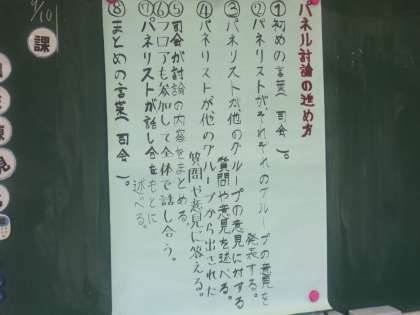 パネル討論の進め方
①初めの言葉(司会)。
②パネリストがそれぞれのグループの意見を
発表する。
③パネリストが他のグループの意見に対する
質問や意見を述べる。
④パネリストが他のグループから出された
質問や意見に答える。
⑤司会が討論の内容をまとめる。
⑥フロアも参加して全体で話し合う。
⑦パネリストが話し合をもとに
述べる。
⑧まとめの言葉(司会)。
9/10
課
見